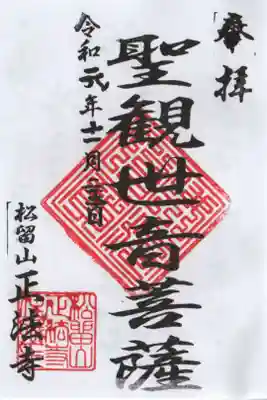 奉拝
聖観世音菩薩
令和元年十一月 日
松留山 正法寺
松留山
正法寺